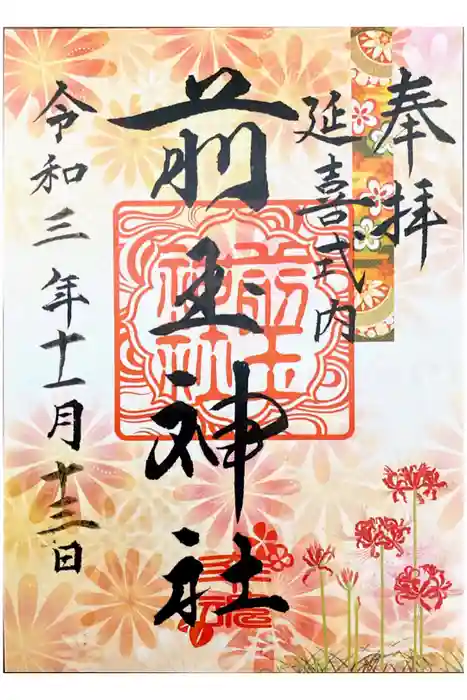 奉拝
延喜式内
前玉神社
前玉
神社
令和三年十一月十三日